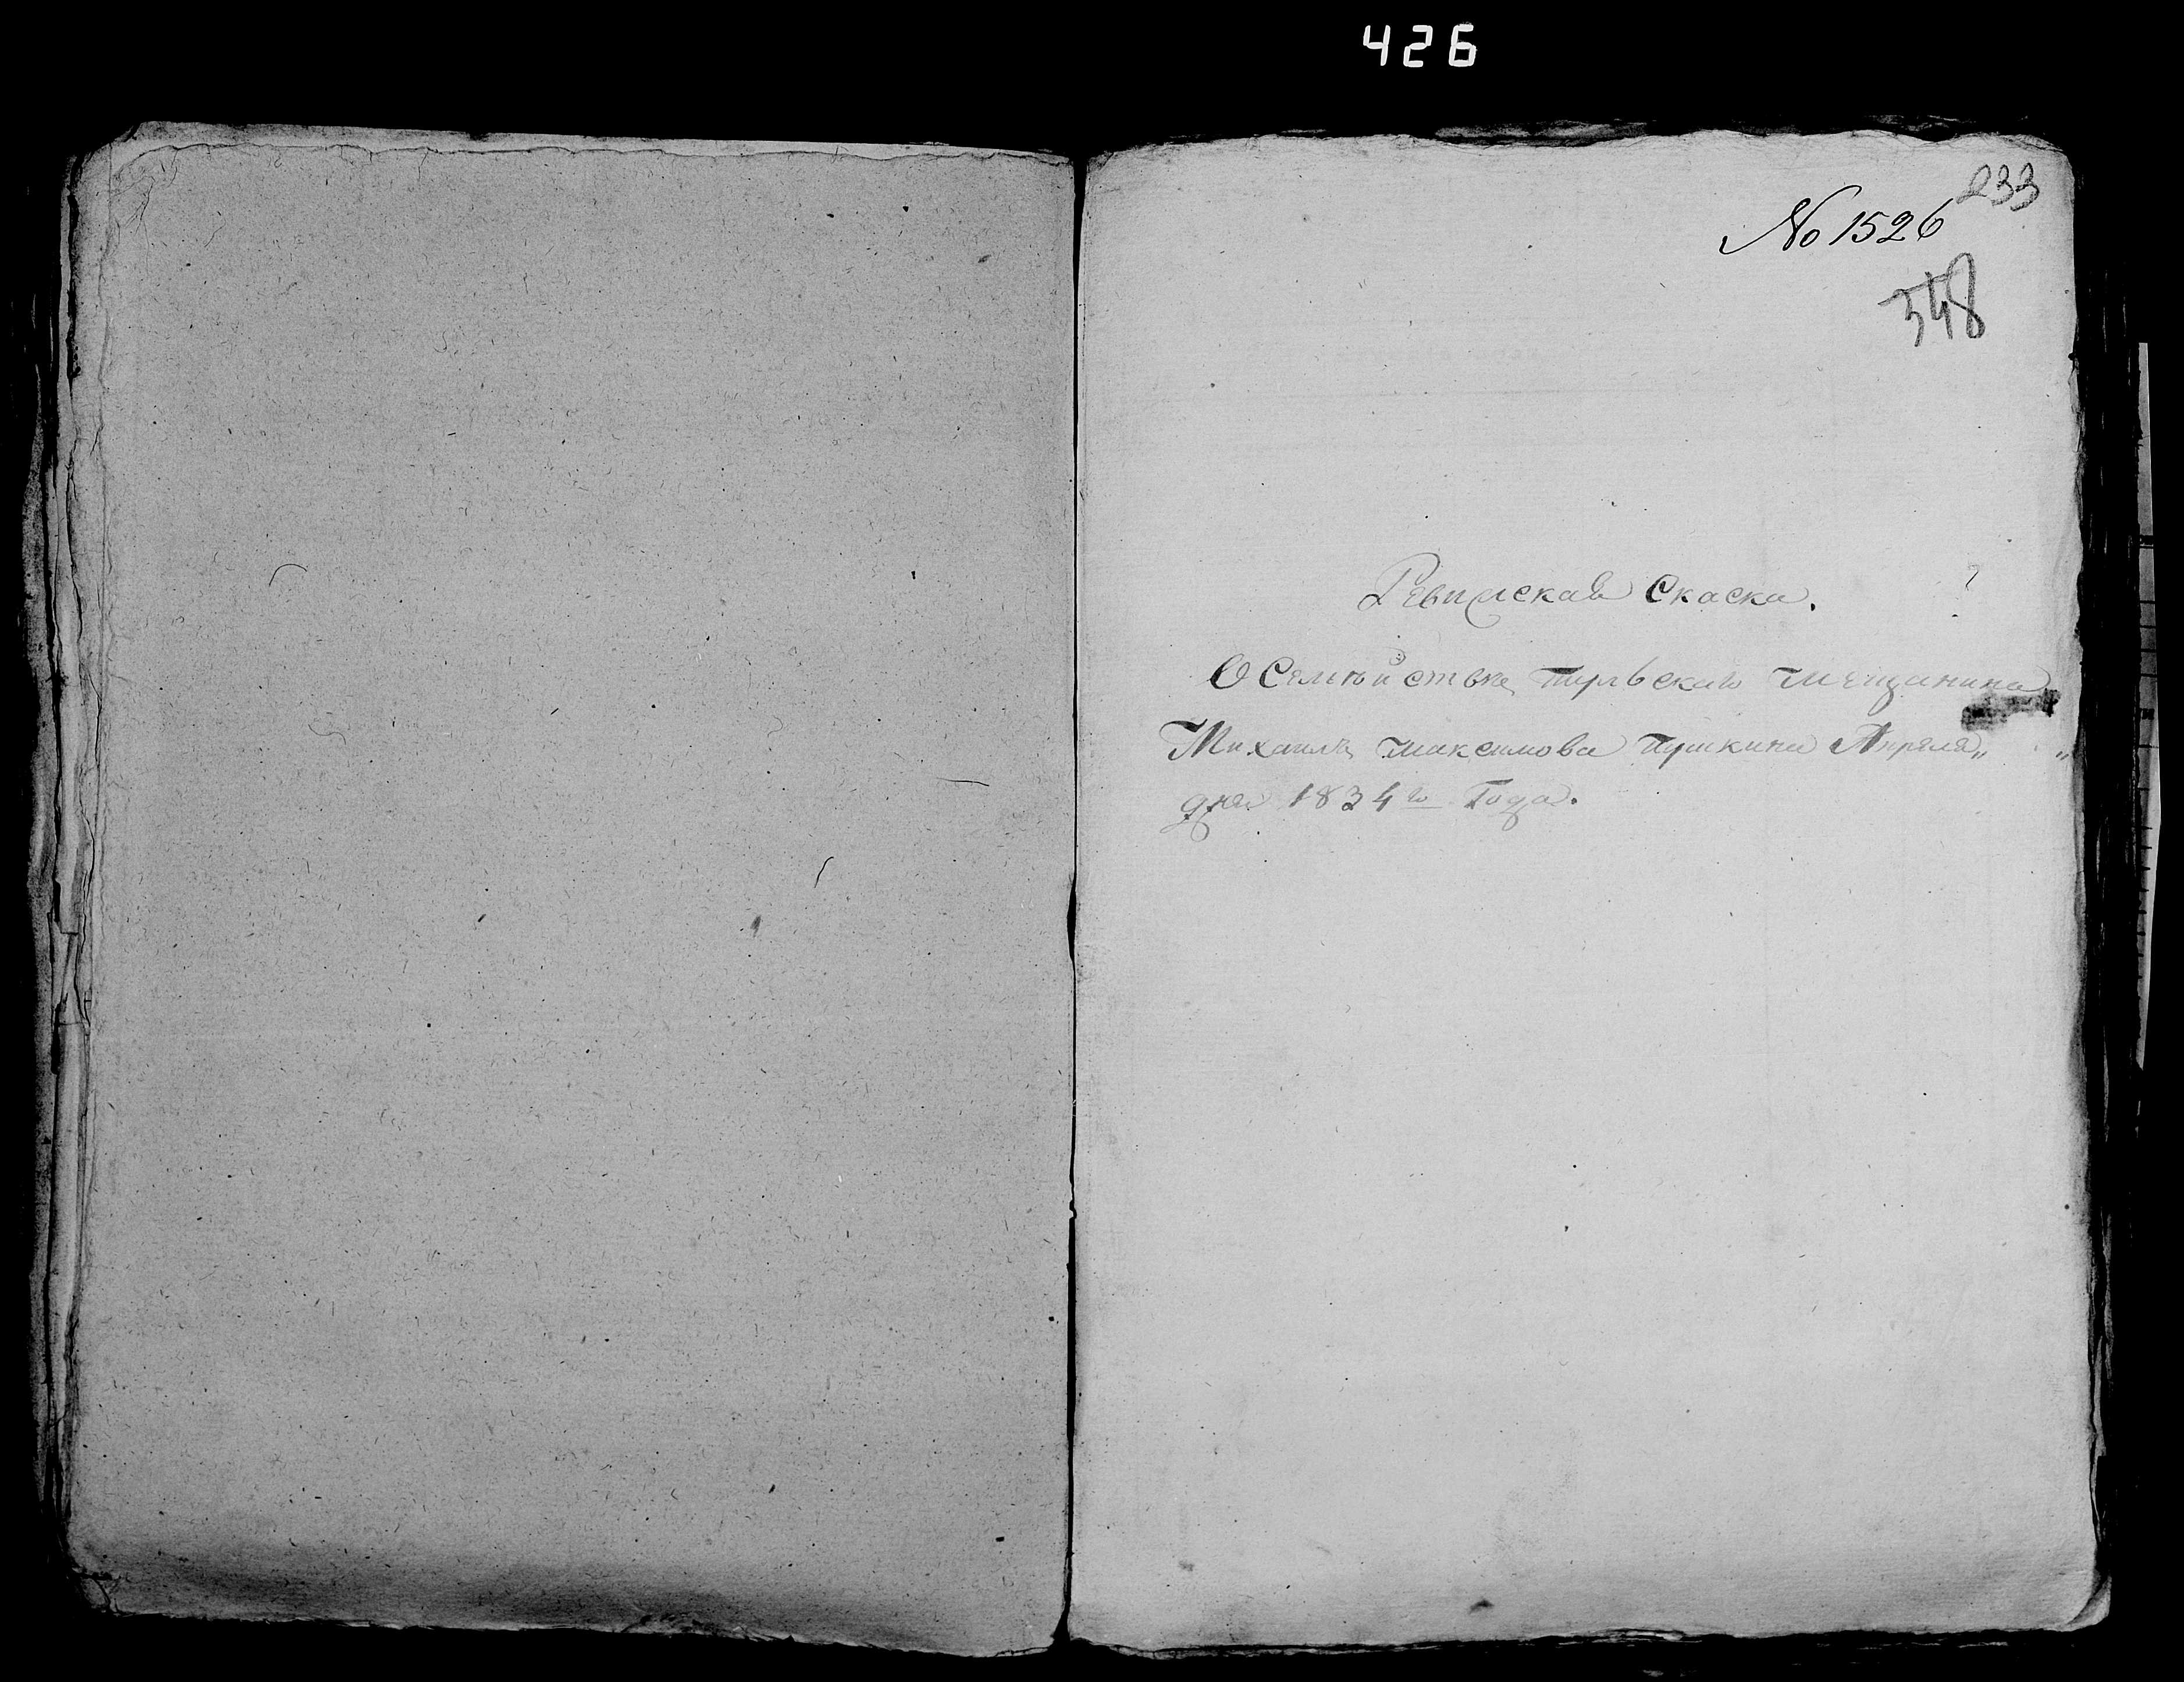 426
233
No 1526
348
Ревиская Скаска.
О Семѣйстве Тульскаго мещанина
Михаилы максимова пушкина Апреля „ „
дня 1834 го Года.